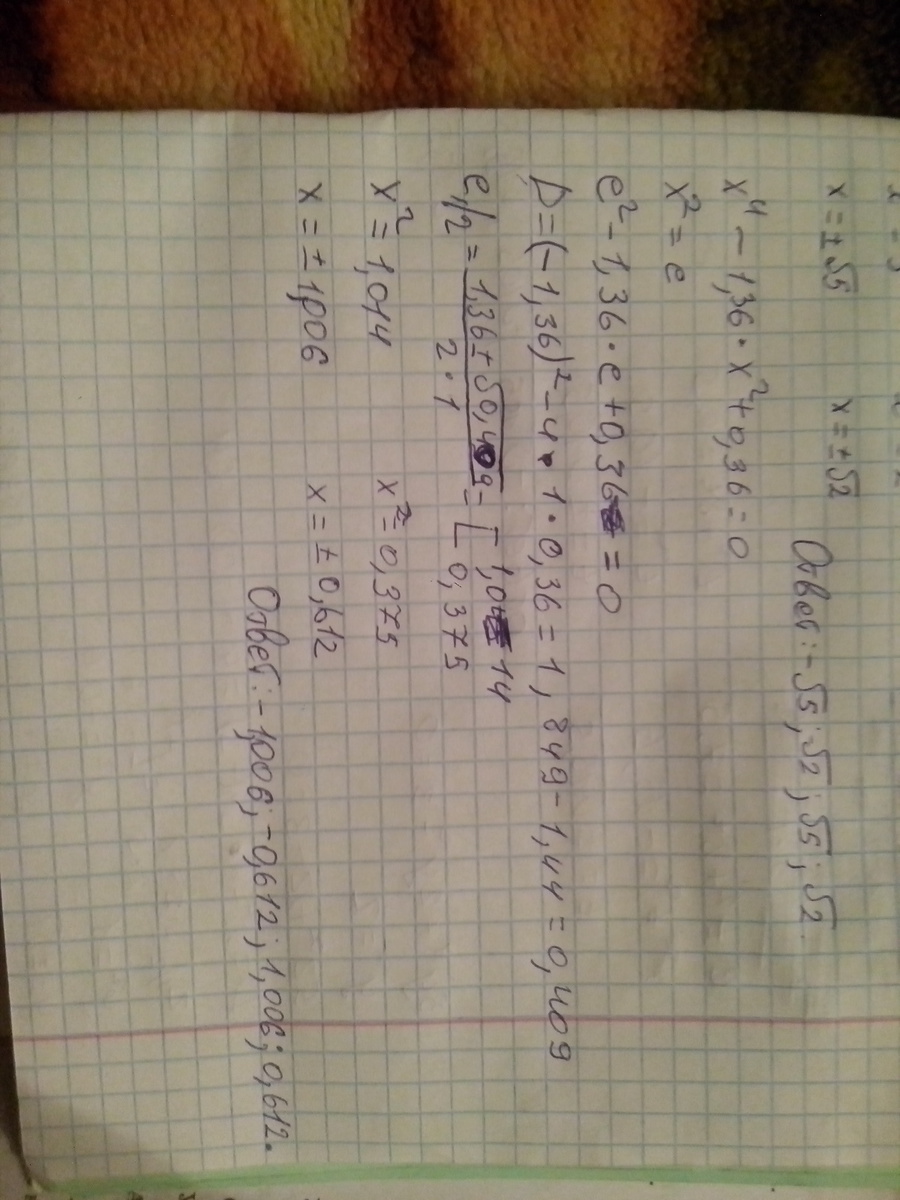 x = ±√5 x = ±√2
Ответ: -√5; √2; √5; √2.
x⁴ - 1,36 · x² + 0,36 = 0
x² = e
e² - 1,36 · e + 0,36 = 0
D = (-1,36)² - 4 · 1 · 0,36 = 1,849 - 1,44 = 0,409
e₁/₂ = (1,36 ± √0,409)/(2 · 1) = [ 1,014 0,375
x² = 1,014 x² = 0,375
x = ±1,006 x = ±0,612
Ответ: -1,006; -0,612; 1,006; 0,612.